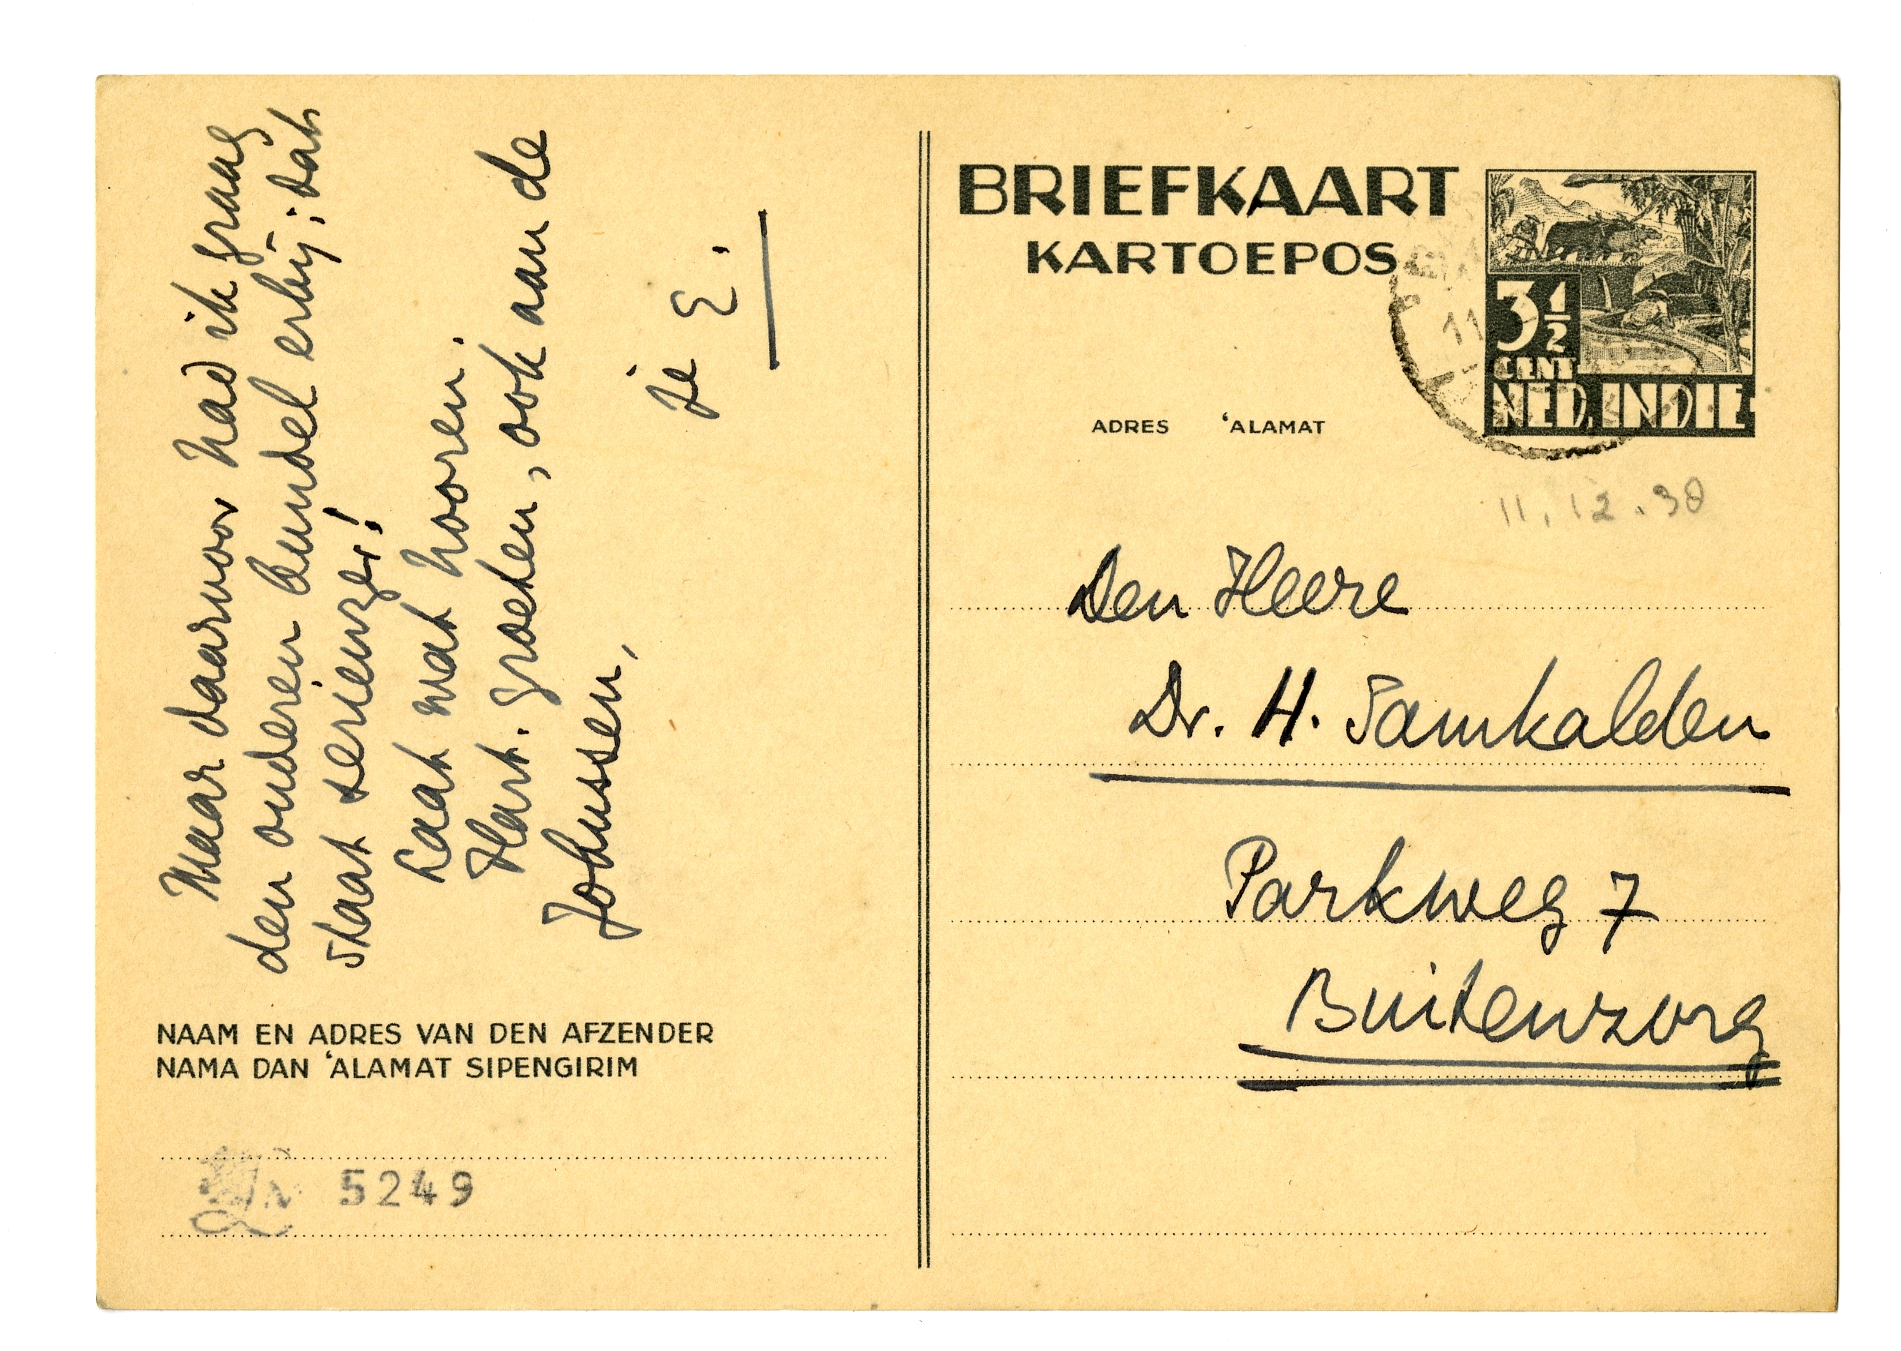 Maar daarvoor had ik graag
den anderen bundel erbij; dat
staat serieuzer!
Laat wat hooren.
Hart. groeten, ook aan de
Johnssen,
je E.
NAAM EN ADRES VAN DEN AFZENDER
NAMA DAN ‘ALAMAT SIPENGIRIM
5249
BRIEFKAART
KARTOEPOS
3 1/2
CENT
NED. INDIE
11
ADRES ‘ALAMAT
11.12.38
Den Heere
Dr. H. Samkalden
Parkweg 7
Buitenzorg